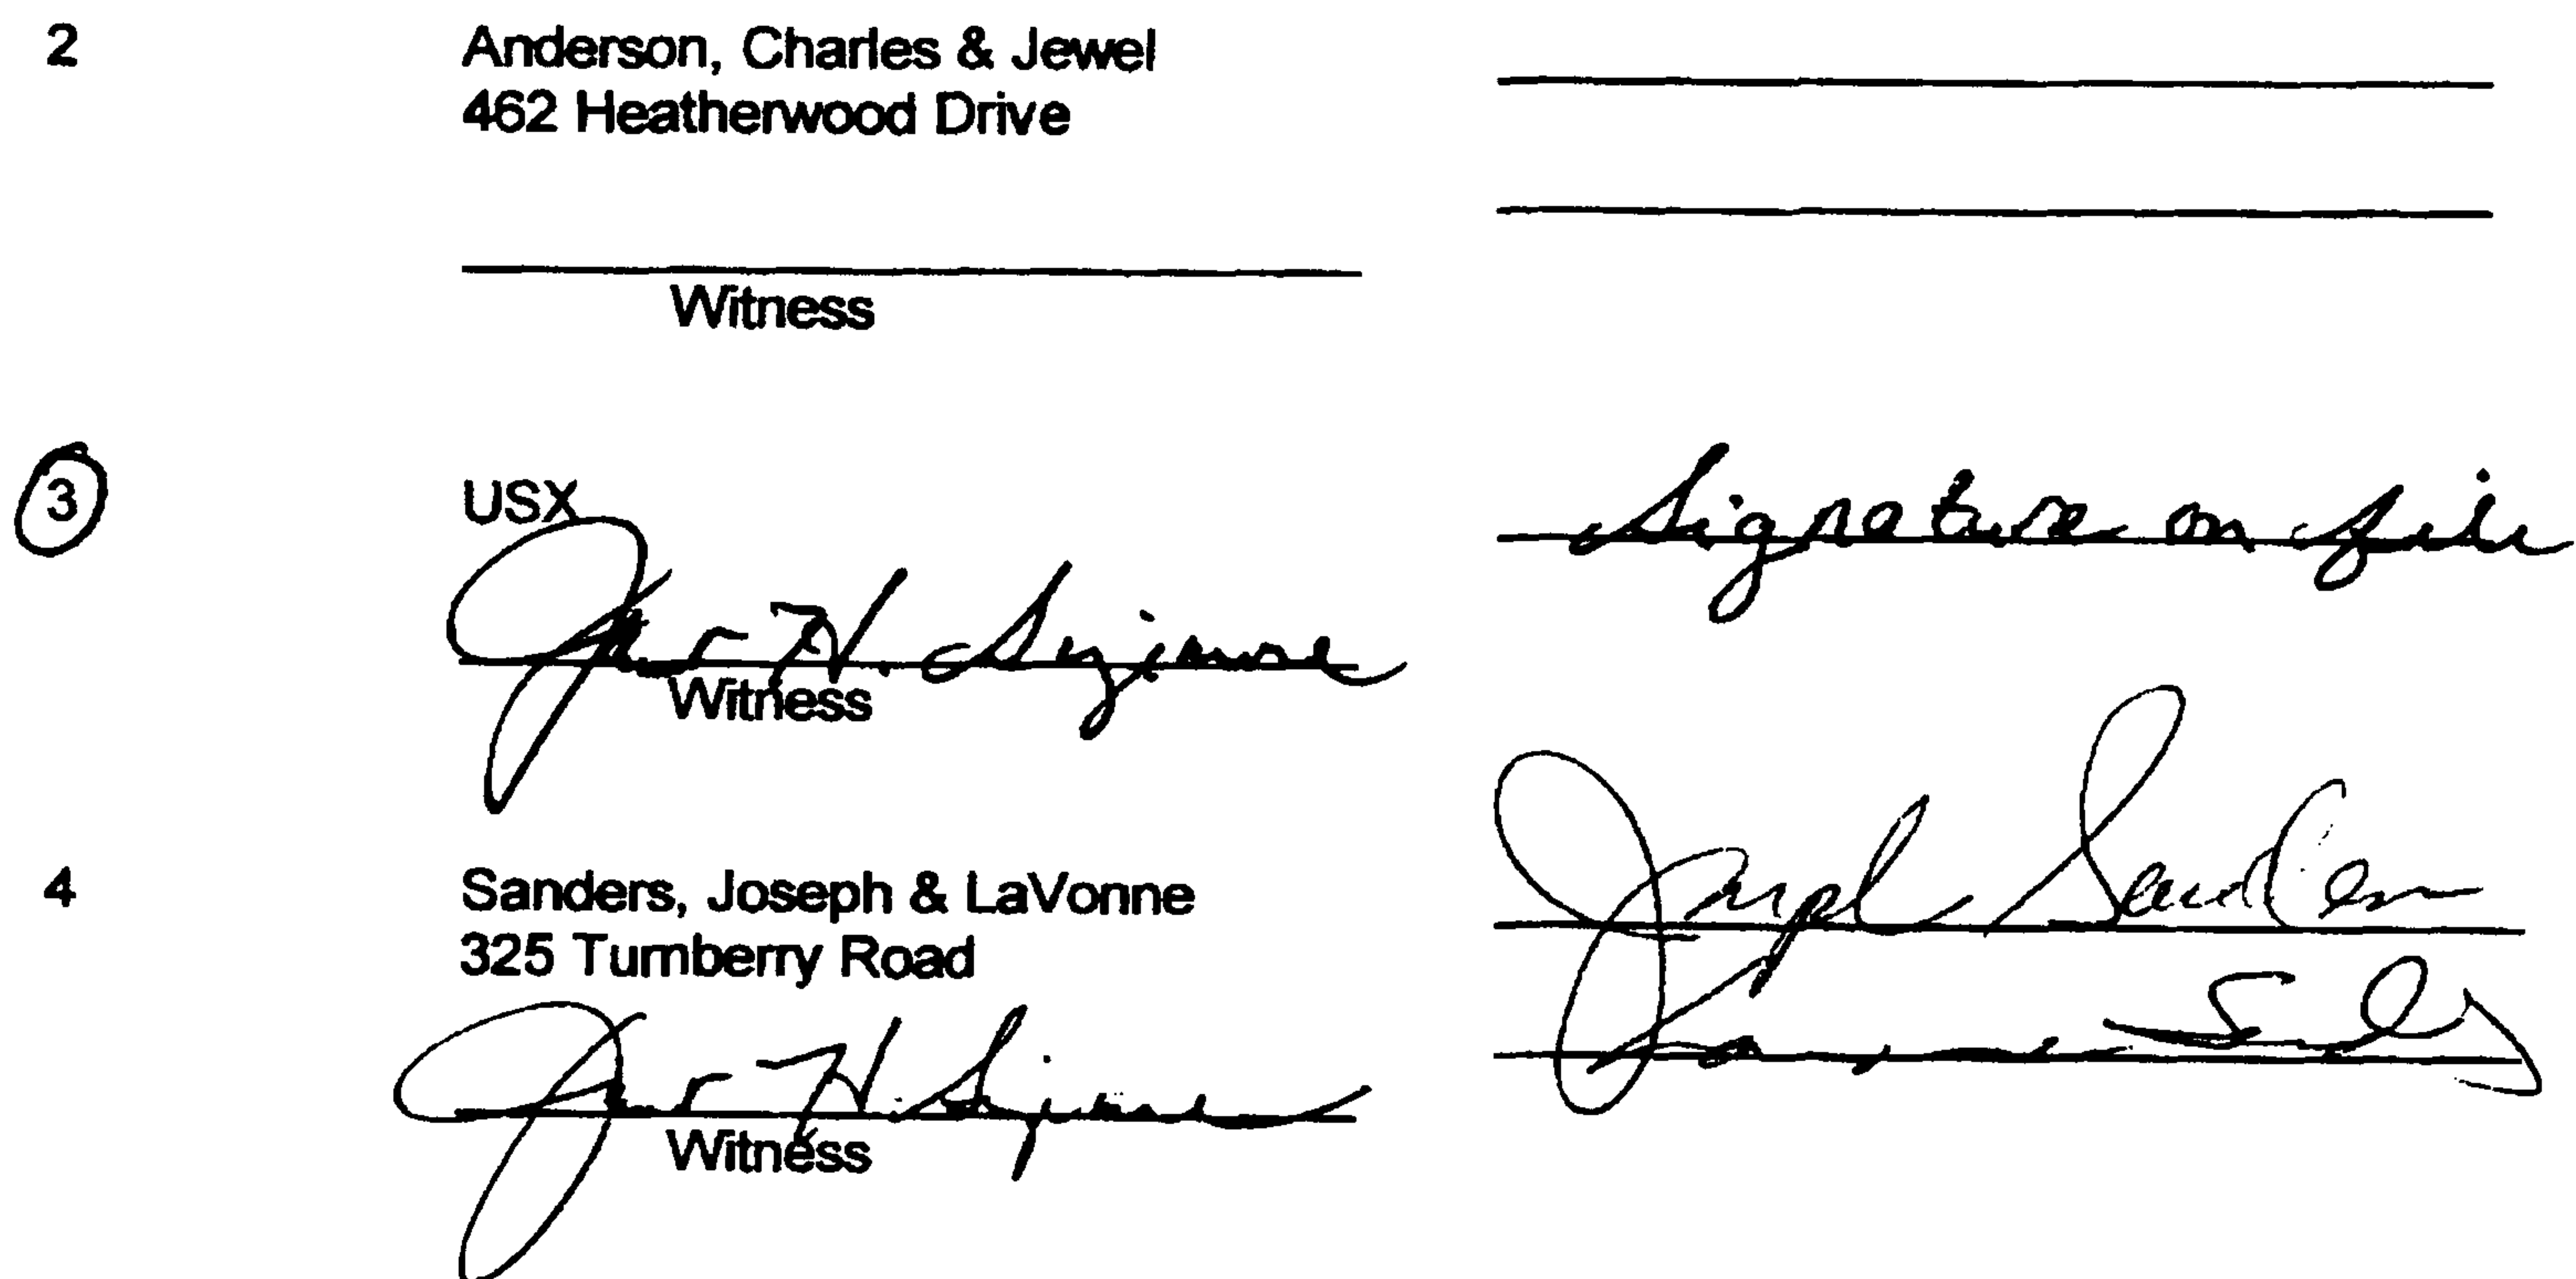 2
Anderson, Charles & Jewel
462 Heatherwood Drive
Witness
3
USX
Signature on file
H.
Witness
4
Sanders, Joseph & LaVonne
325 Turnberry Road
Joseph Sanders
H.
Witness